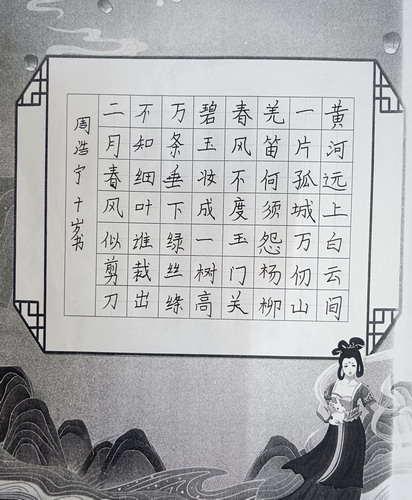 黄河远上白云间
一片孤城万仞山
羌笛何须怨杨柳
春风不度玉门关
碧玉妆成一树高
万条垂下绿丝绦
不知细叶谁裁出
二月春风似剪刀
周浩宁十岁书